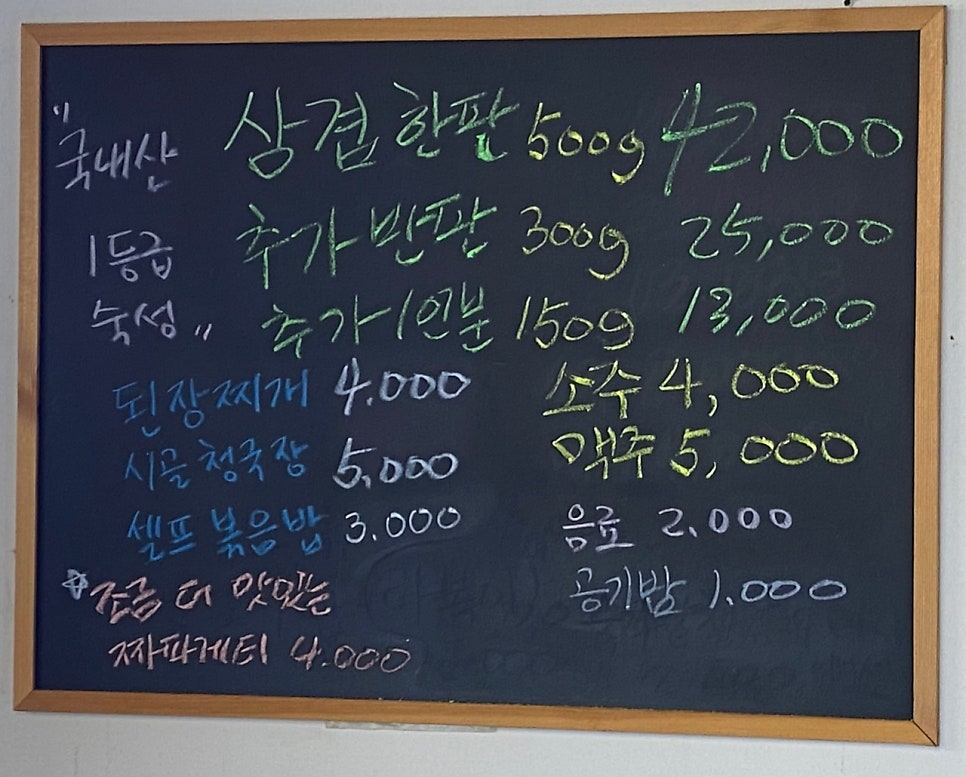 "국내산 삼겹한판 500g 42,000
1등급 추가반판 300g 25,000
숙성" 추가1인분 150g 13,000
된장찌개 4.000 소주 4,000
시골청국장 5,000 맥주 5,000
셀프볶음밥 3.000 음료 2.000
☆조금 더 맛있는 공기밥 1.000
짜파게티 4.000